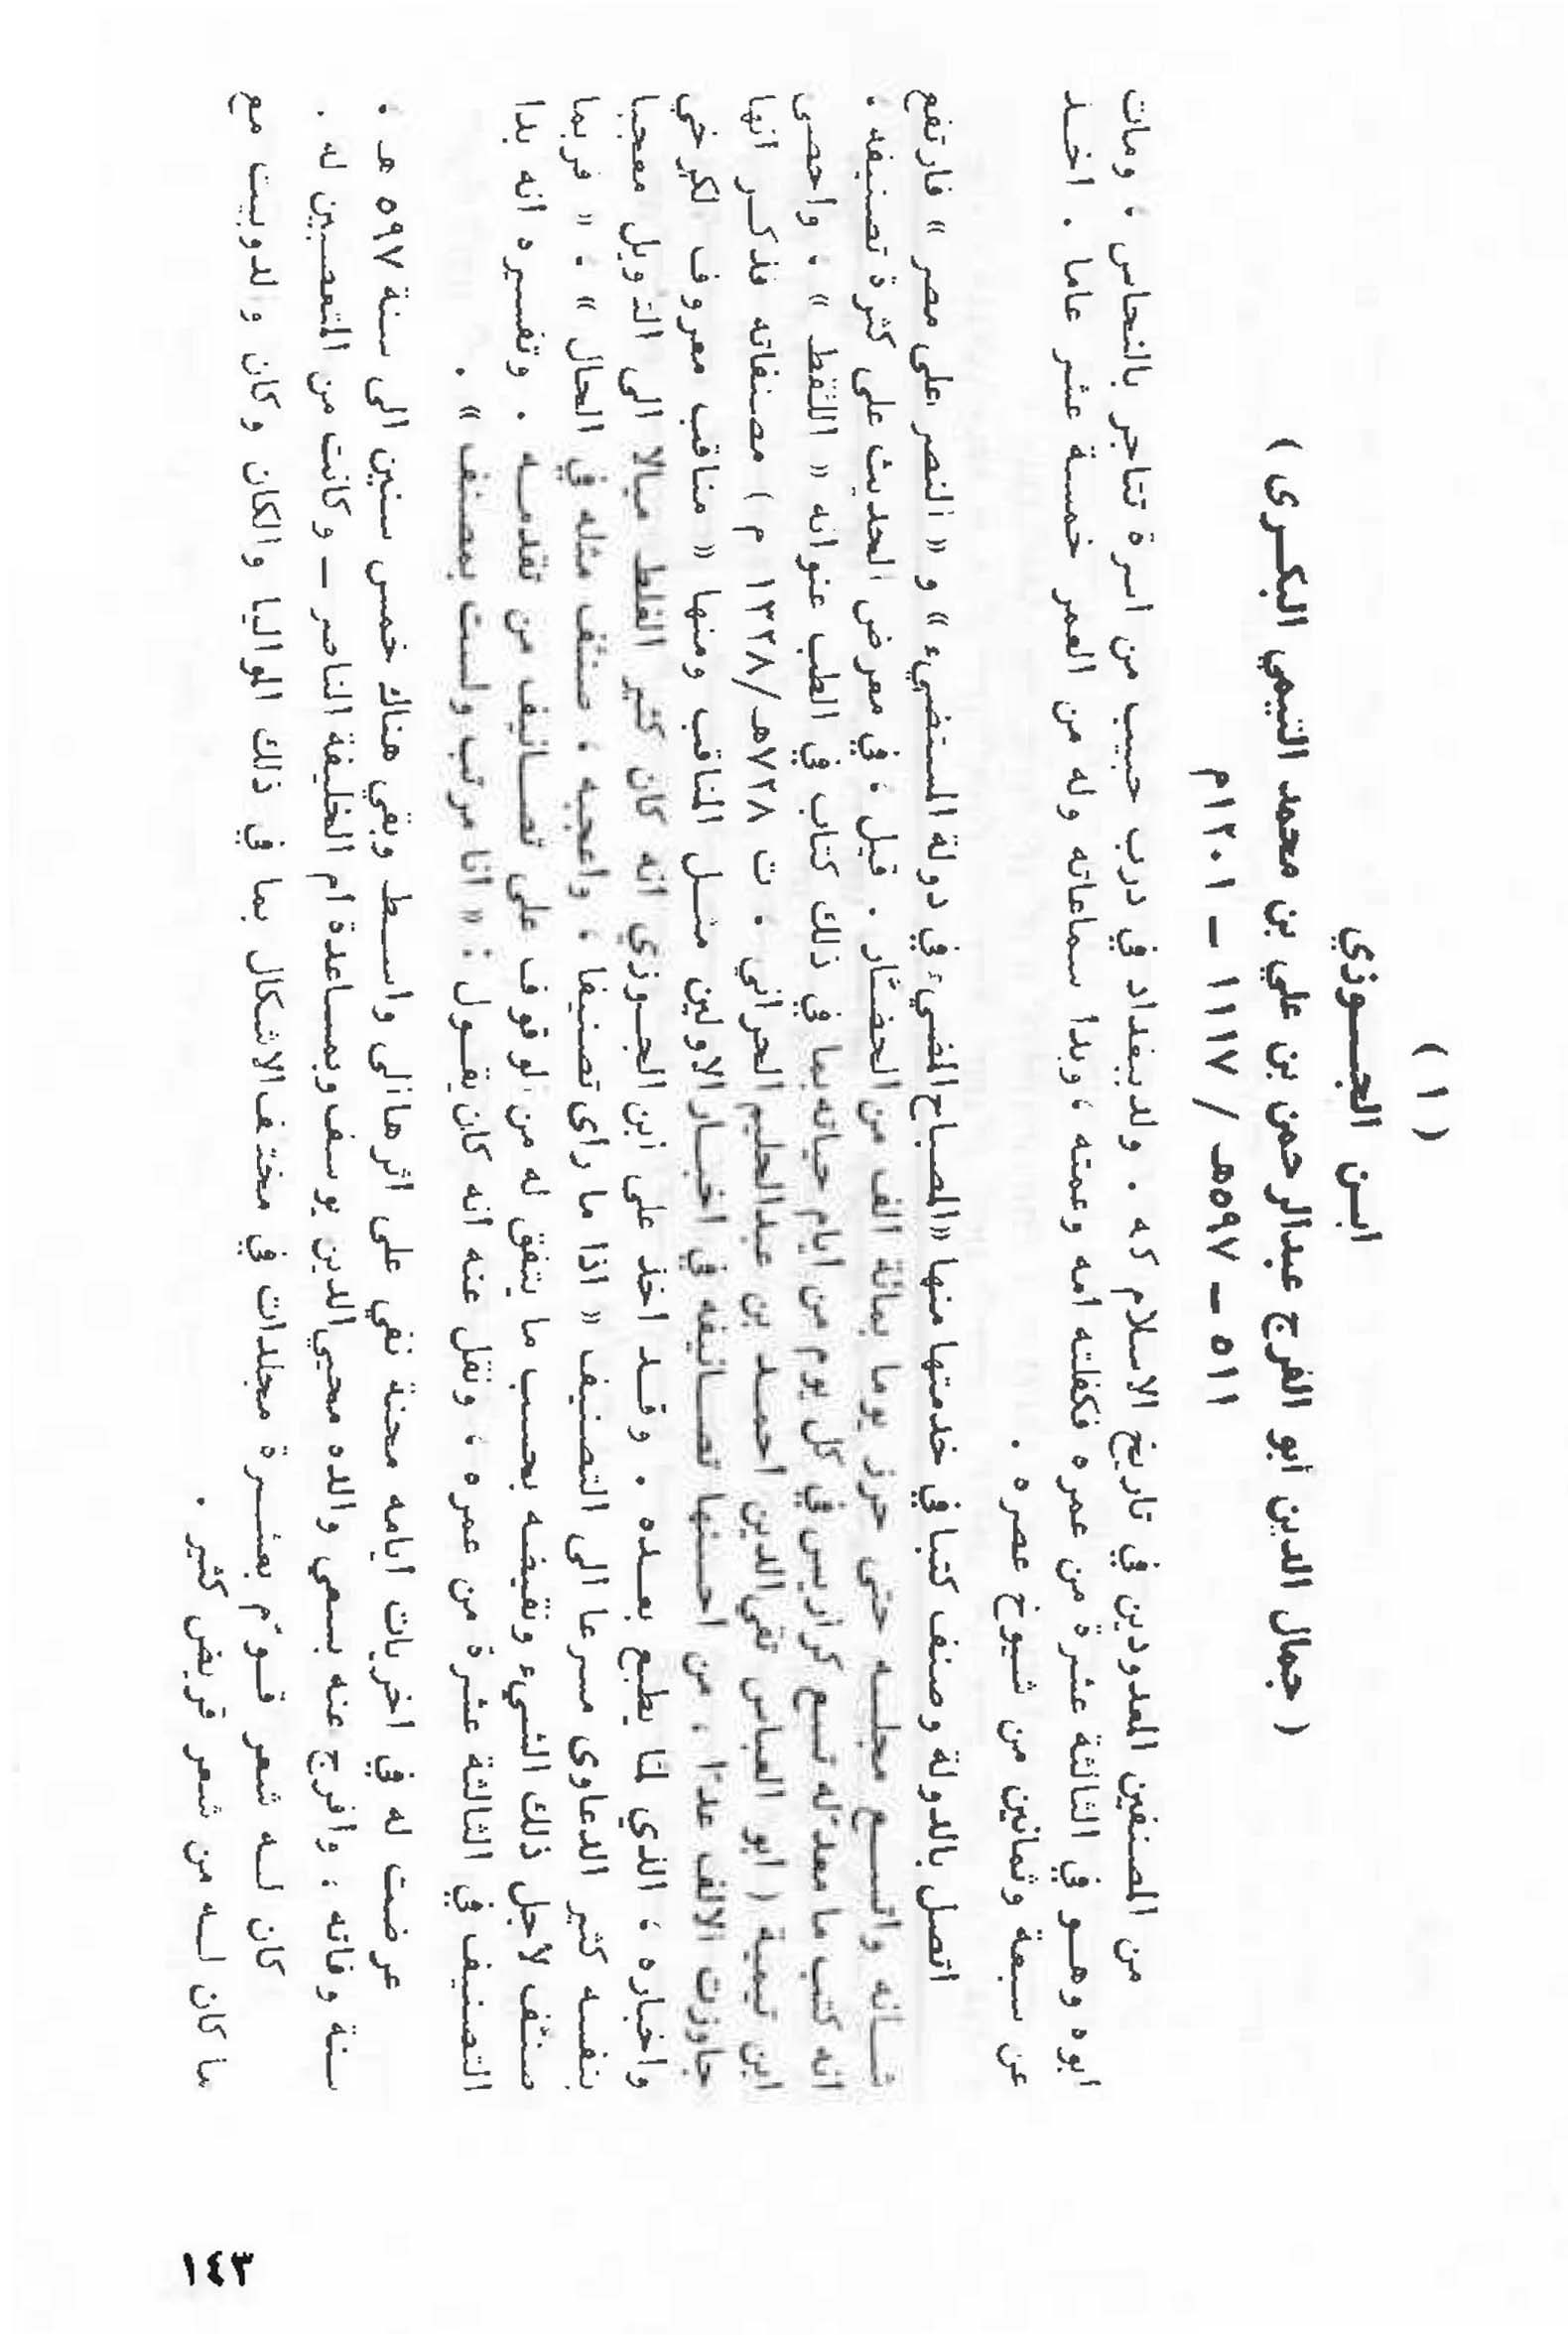 ( ١ )
ابـن الجــوزي
( جمال الدين أبو الفرج عبدالرحمن بن علي بن محمد التيمي البكـرى )
٥١١ ــ ٥٩٧هـ / ١١١٧ ــ ١٢٠١م
من المصنفين المعدودين في تاريخ الاسلام كه . ولد ببغداد في درب حبيب من اسرة تتاجر بالنحاس ، ومات
ابوه وهـو في الثالثة عشرة من عمره فكفلته امه وعمته ، وبدا سماعاته وله من العمر خمسة عشر عاما . اخـذ
عن سبعة وثمانين من شيوخ عصره .
اتصل بالدولة وصنف كتبا في خدمتها منها «المصباح المضيء في دولة المستضيء » و « النصر على مصر » فارتفع
شـانه واتسـع مجلسـه حتى حرز يوما بمائة الف من الحضّار . قيل ، في معرض الحديث على كثرة تصنيفه .
انه كتب ما معدّله تسع كراريس في كل يوم من ايام حياته بما في ذلك كتاب في الطب عنوانه « اللقط » . واحصى
ابن تيمية ( ابو العباس تقي الدين احمـد بن عبدالحليم الحراني . ت ٧٢٨هـ/١٣٢٨ م ) مصنفاته فذكـر انها
جاوزت الالف عدّا ، من احسـنها تصـانيفه في اخبـار الاولين مثـل المناقب ومنها « مناقب معروف لكرخي
واخباره ، الذي لمّا يطبع بعـده . وقـد اخذ على ابن الجـوزي انه كان كثير الغلط ميالا الى التاويل معجبا
بنفسـه كثير الدعاوى مسرعا الى التصنيف « اذا ما راى تصنيفا ، واعجبه ، صنّف مثله في الحال » . « فربما
صنّف لأجل ذلك الشيء ونقيضـه بحسب ما يتفق له من لوقوف على تصـانيف من تقدمـه . وتفسيره انه بدا
التصنيف في الثالثة عشرة من عمره ، ونقل عنه انه كان يقـول : « انا مرتب ولست بمصنف » .
عرضت له في اخريات ايامه محنة نفي على اثرها الى واسـط وبقي هناك خمس سنين الى سنة ٥٩٧ هـ ،
سنة وفاته ؛ وافرج عنه بسعي والده محيي الدين يوسف وبمساعدة ام الخليفة الناصر ــ وكانت من المتعصبين له .
كان لـه شعر قـوّم بعشـرة مجلدات في مختف الاشكال بما في ذلك المواليا والكان وكان والدوبيت مع
ما كان لـه من شعر قريض كثير .
١٤٣